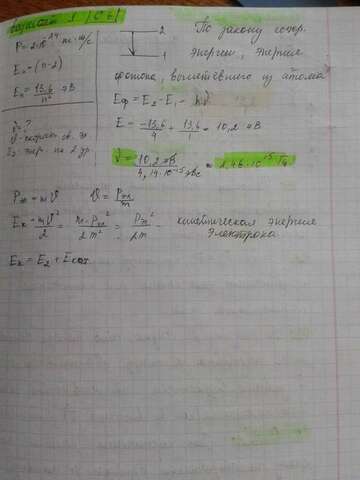 Вариант 1 (С6)
P = 2·10⁻²⁴ кг·м/с
Eₙ - (n=2)
Eₙ = 13,6/n² эВ
ν = ?
2
1
По закону сохр.
энергии, энергия
фотона, вылетевшего из атома
Eф = E₂ - E₁ - hν
E = -13,6/4 + 13,6/1 = 10,2 эВ
ν = 10,2 эВ / 4,14·10⁻¹⁵ эВс = 2,46·10¹⁵ Гц
Pэл = mϑ ϑ = Pэл/m
Eк = mϑ²/2 = m·Pэл²/2m² = Pэл²/2m - кинетическая энергия
электрона
Eк = E₂ + Eфот